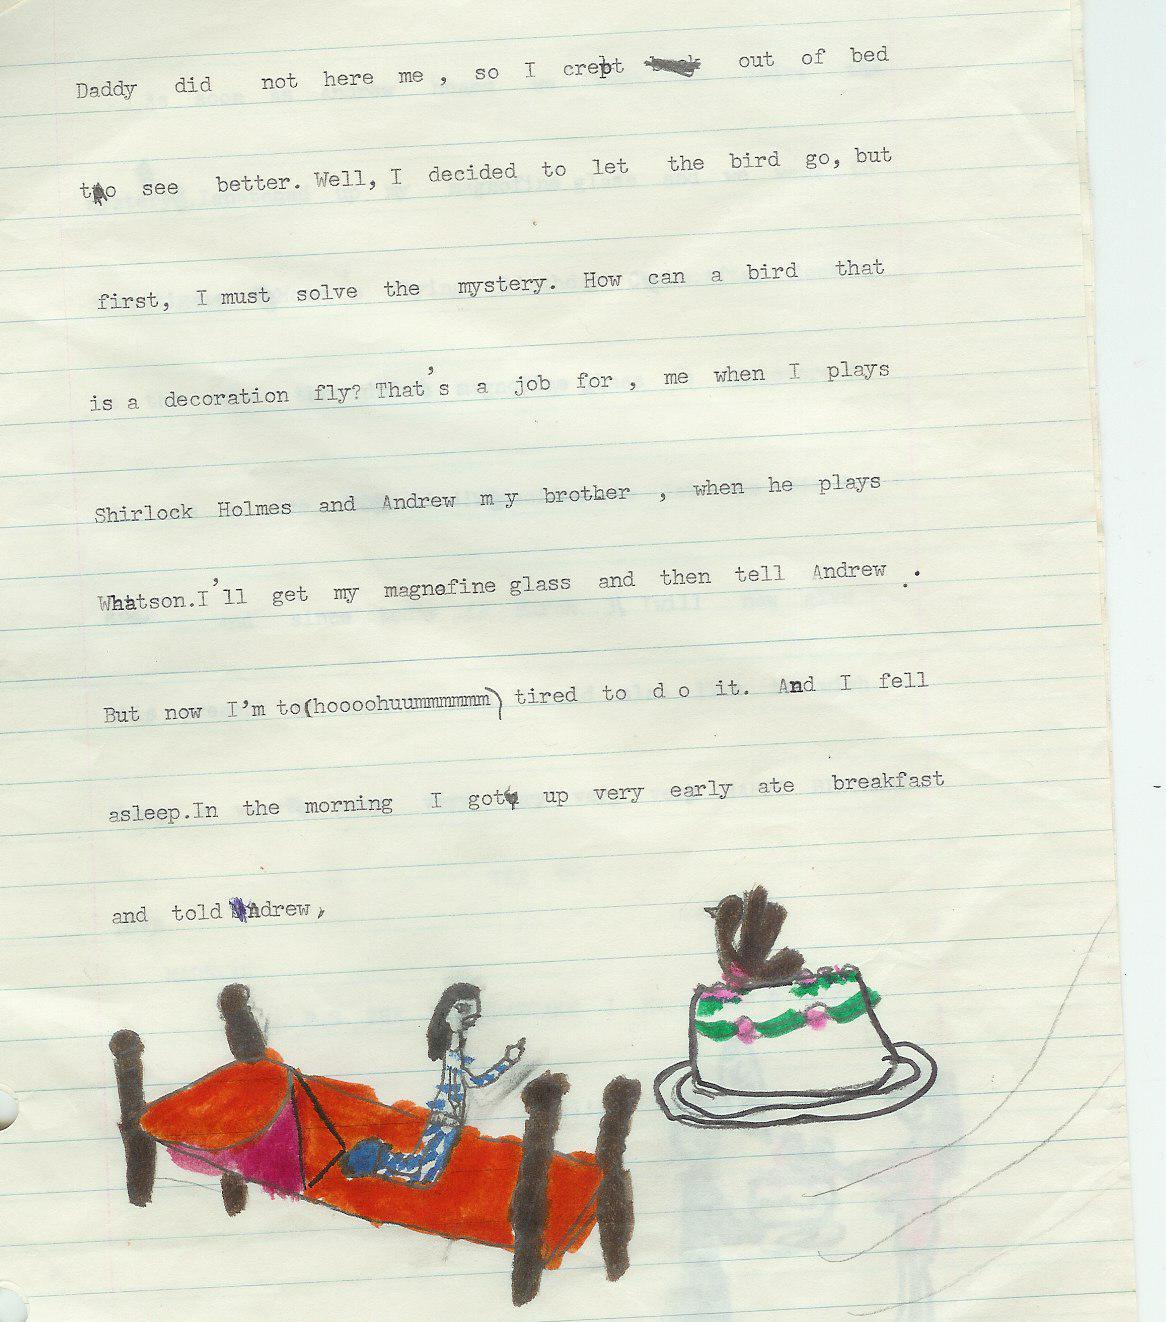 Daddy did not here me , so I crept out of bed
to see better. Well, I decided to let the bird go, but
first, I must solve the mystery. How can a bird that
is a decoration fly? That's a job for , me when I plays
Shirlock Holmes and Andrew m y brother , when he plays
Whatson.I'll get my magnefine glass and then tell Andrew .
But now I'm to(hoooohuummmmmm) tired to d o it. And I fell
asleep.In the morning I got up very early ate breakfast
and told Andrew,